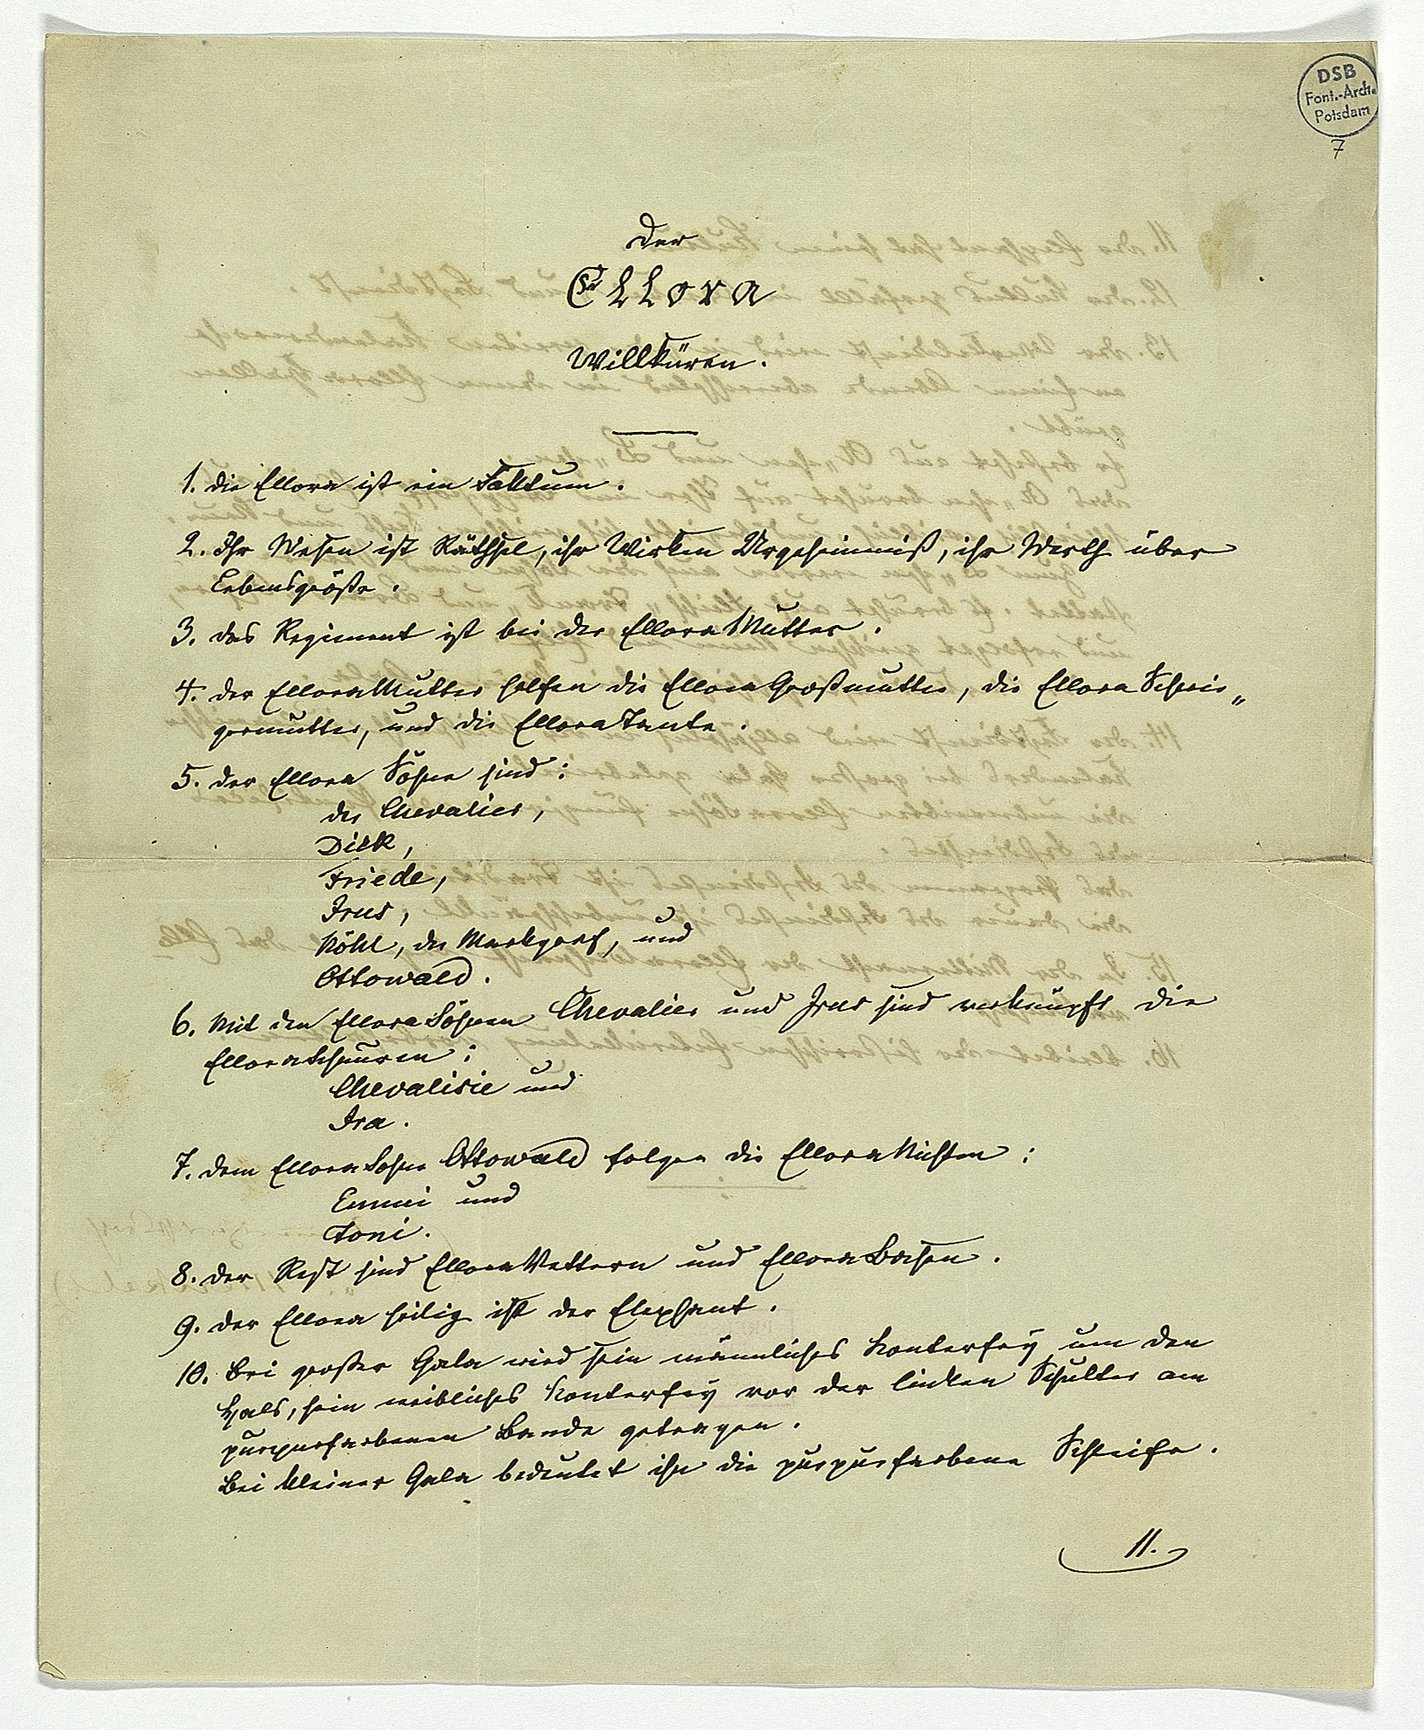 DSB
Font.-Arch.
Potsdam
7
Der
Ellora
Willküren.
1. Die Ellora ist ein Faktum.
2. Ihr Wesen ist Räthsel, ihr Wirken Urgeheimniß, ihr Werth über
Lebensgröße.
3. Das Regiment ist bei der Ellora Mutter.
4. Der Ellora Mutter helfen die Ellora Großmutter, die Ellora Schwie„
germutter, und die Ellora Tante.
5. Der Ellora Söhne sind:
der Chevalier,
Dick,
Friede,
Irus,
Röhl, der Markgraf, und
Ottowald.
6. Mit den Ellora Söhnen Chevalier und Irus sind verknüpft die
Ellora
Chevalisie und
Ira.
7. Dem Ellora Sohne Ottowald folgen die Ellora Nichten:
Emmi und
Toni.
8. Der Rest sind Ellora Vettern und Ellora Basen.
9. Der Ellora heilig ist der Elephant.
10. Bei großer Gala wird sein männliches Konterfey um den
Hals, sein weibliches Konterfey vor der linken Schulter am
purpurfarbenen Bande getragen.
Bei kleiner Gala bedeutet ihn die purpurfarbene Schleife.
11.